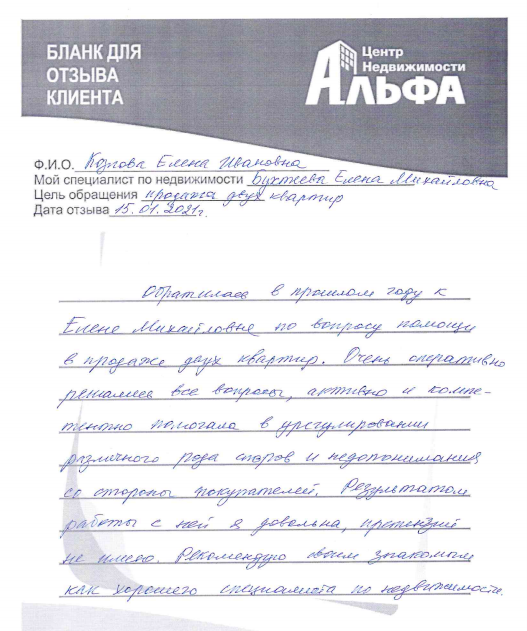 БЛАНК ДЛЯ
ОТЗЫВА
КЛИЕНТА
Центр
Недвижимости
АЛЬФА
Ф.И.О. Козлова Елена Ивановна
Мой специалист по недвижимости Елена Михайловна
Цель обращения продажа двух квартир
Дата отзыва 15.01.2021г.
Обратилась в прошлом году к
Елене Михайловне по вопросу помощи
в продаже двух квартир. Очень оперативно
решались все вопросы, активно и компе-
тентно помогала в урегулировании
различного рода споров и недопонимания
со стороны покупателей. Результатом
работы с ней я довольна, претензий
не имею. Рекомендую своим знакомым
как хорошего специалиста по недвижимости.